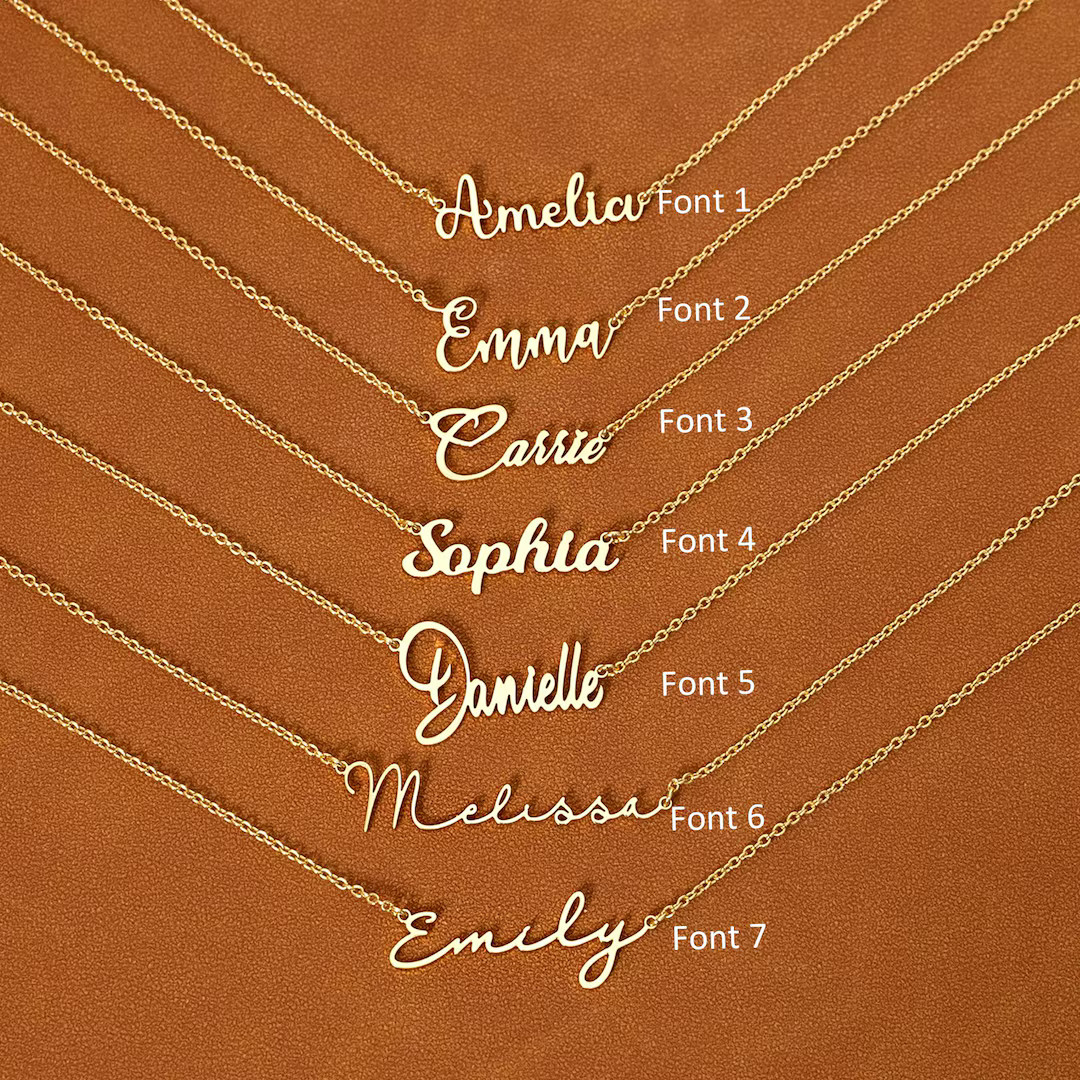 Amelia Font 1
Emma Font 2
Carrie Font 3
Sophia Font 4
Danielle Font 5
Melissa Font 6
Emily Font 7